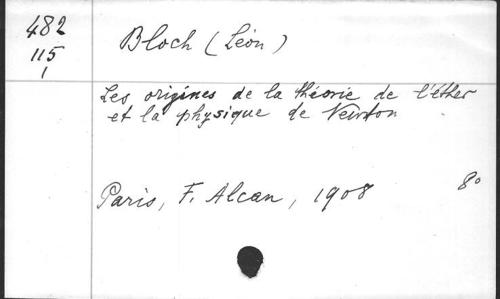 482
115
1
Bloch (Léon)
Les origines de la théorie de l'éther
et la physique de Newton
Paris, F. Alcan, 1908
8°